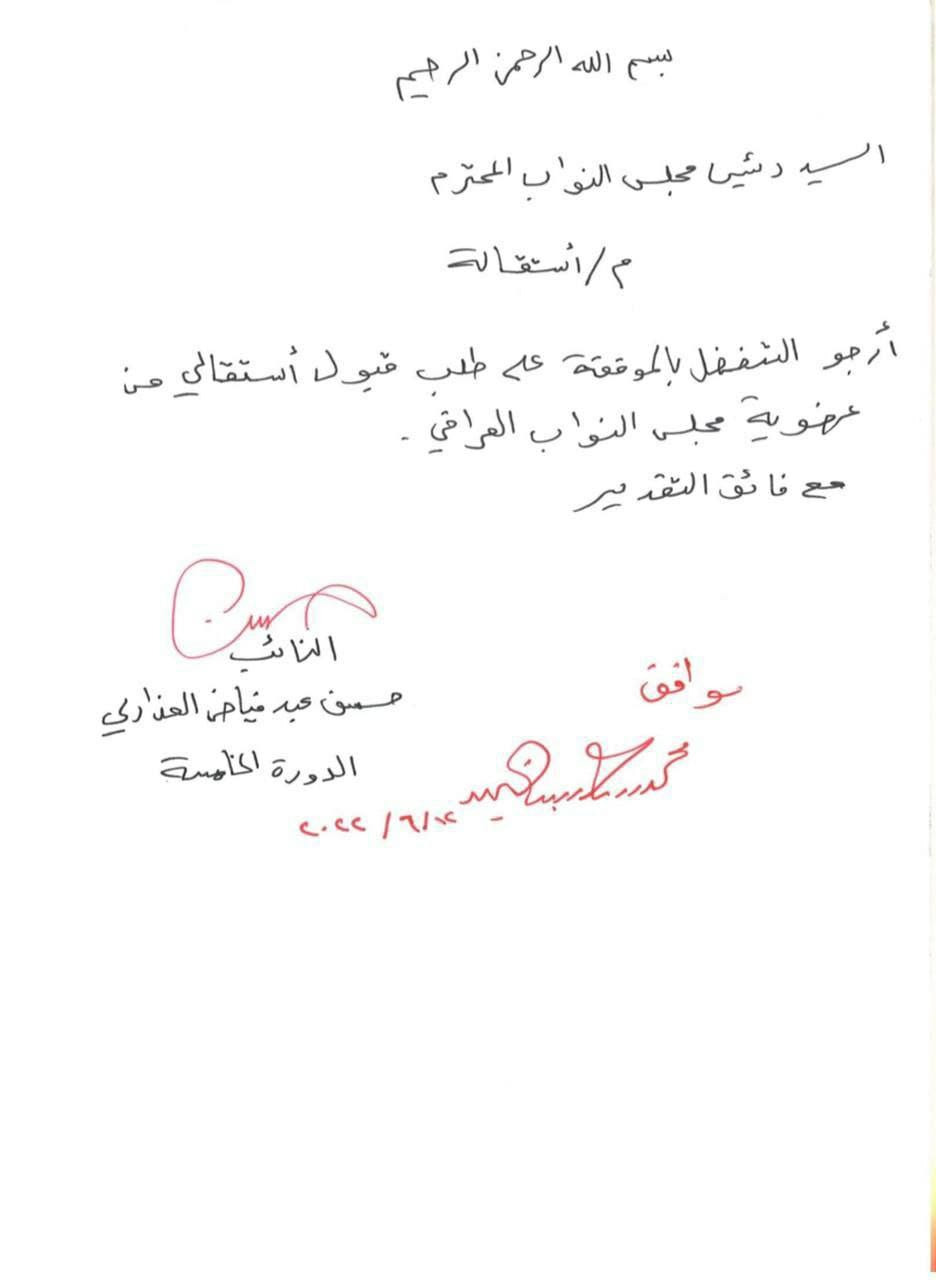 بسم الله الرحمن الرحيم
السيد رئيس مجلس النواب المحترم
م/أستقالة
أرجو التفضل بالموفقة على طلب قبول أستقالي من
عضوية مجلس النواب العراقي .
مع فائق التقدير
النائب
حسين عبد فياض العذاري
الدورة الخامسة
موافق
٢٠٢٢/٦/١٢